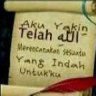 Aku Yakin
Telah الله
Merencanakan Sesuatu
Yang Indah
Untukku